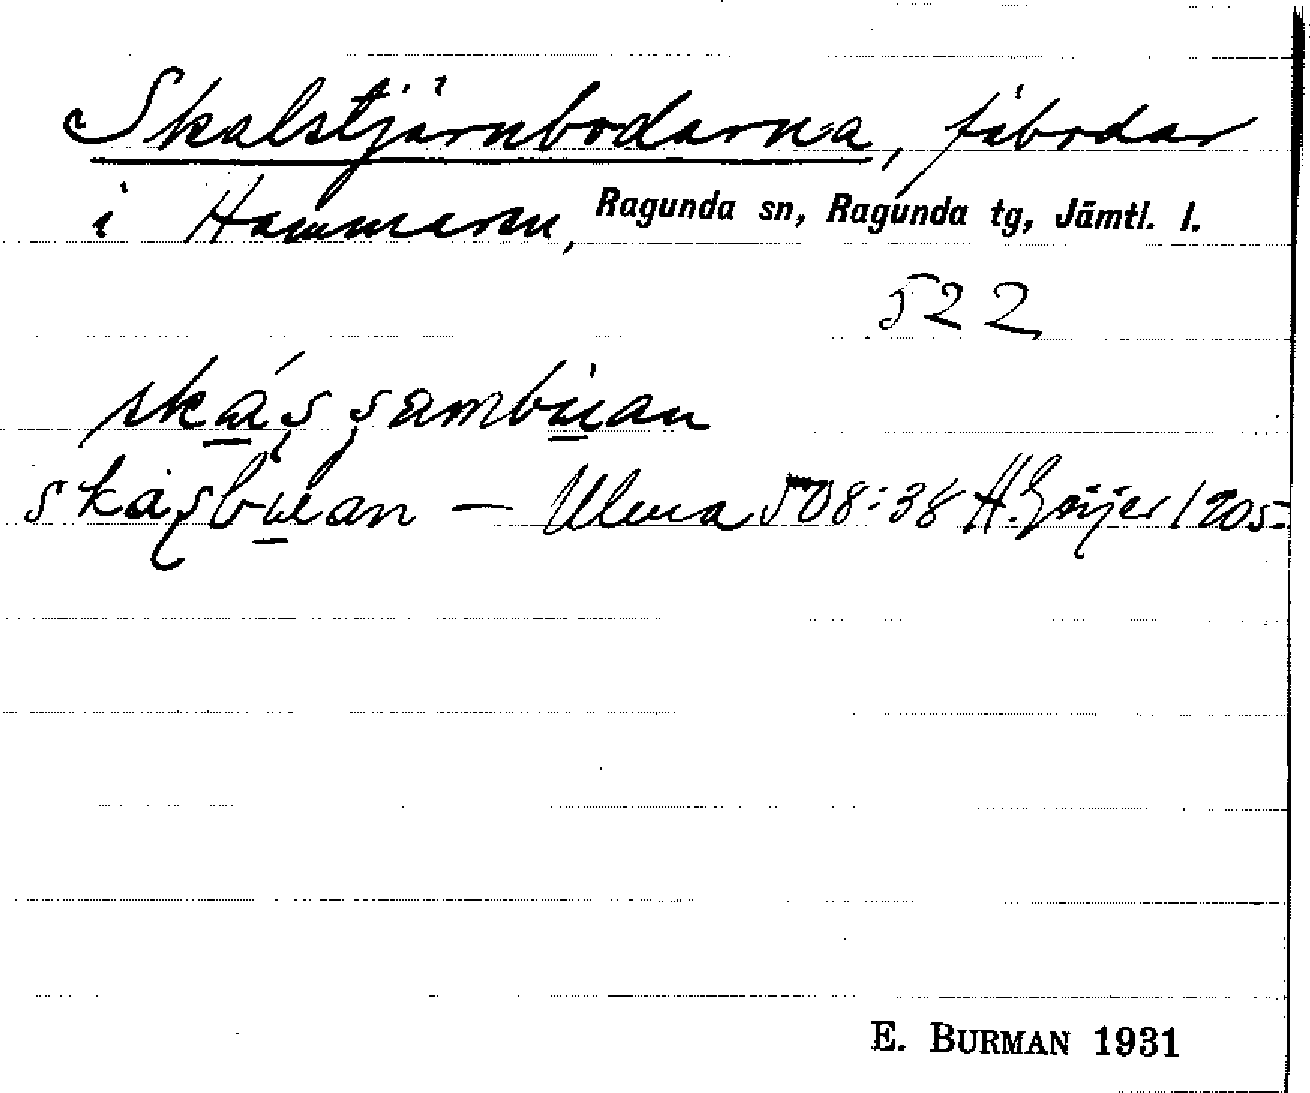 Skalstjärnbodarna, fäbodar
i Hammaren, Ragunda sn, Ragunda tg, Jämtl. l.
522
skáṣṣambüan
skaṣbüan — Ulma 508:38 H. Geijer 1905.
E. BURMAN 1931